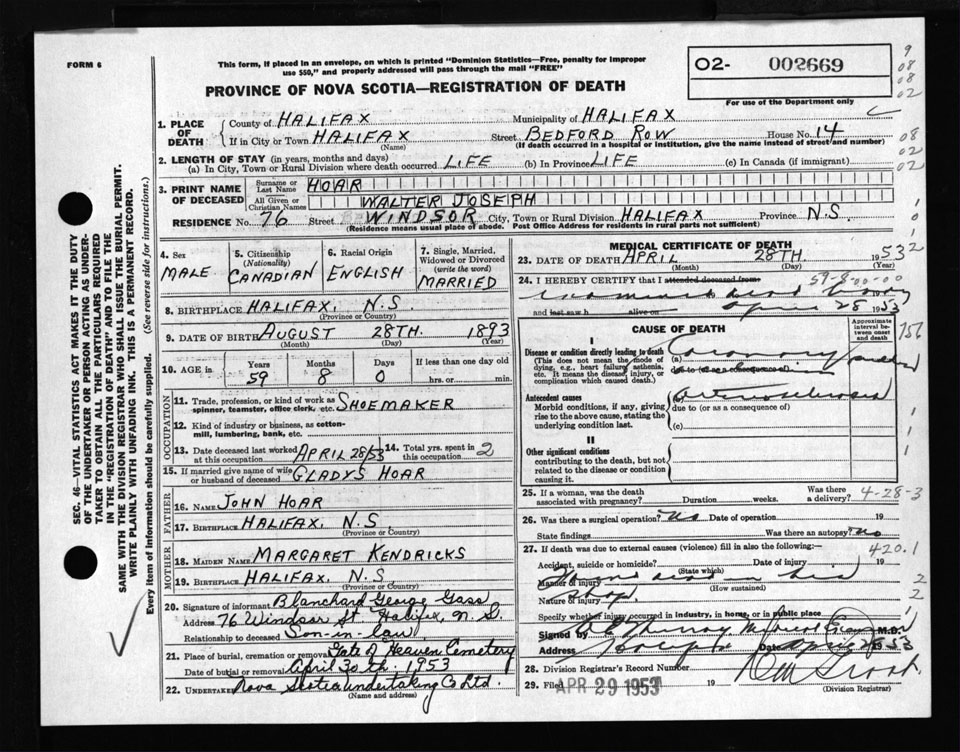 FORM 6
This form, if placed in an envelope, on which is printed "Dominion Statistics—Free, penalty for improper
use $50," and properly addressed will pass through the mail "FREE"
O2- 002669
For use of the Department only
9
08
08
02
PROVINCE OF NOVA SCOTIA—REGISTRATION OF DEATH
1. PLACE OF DEATH
County of HALIFAX Municipality of HALIFAX
If in City or Town HALIFAX Street BEDFORD ROW House No. 14 08
(Name) (If death occurred in a hospital or institution, give the name instead of street and number) 02
2. LENGTH OF STAY (in years, months and days)
(a) In City, Town or Rural Division where death occurred LIFE (b) In Province LIFE (c) In Canada (if immigrant) 02
3. PRINT NAME OF DECEASED
Surname or Last Name HOAR
All Given or Christian Names WALTER JOSEPH
RESIDENCE No. 76 Street WINDSOR City, Town or Rural Division HALIFAX Province N.S.
(Residence means usual place of abode. Post Office Address for residents in rural parts not sufficient)
4. Sex
MALE
5. Citizenship (Nationality)
CANADIAN
6. Racial Origin
ENGLISH
7. Single, Married, Widowed or Divorced (write the word)
MARRIED
8. BIRTHPLACE HALIFAX, N.S.
(Province or Country)
9. DATE OF BIRTH AUGUST 28TH. 1893
(Month) (Day) (Year)
10. AGE in Years Months Days If less than one day old
59 8 0 hrs. or min.
OCCUPATION
11. Trade, profession, or kind of work as SHOEMAKER
spinner, teamster, office clerk, etc.
12. Kind of industry or business, as cotton-
mill, lumbering, bank, etc.
13. Date deceased last worked at this occupation APRIL 28/53
14. Total yrs. spent in this occupation 2
15. If married give name of wife or husband of deceased GLADYS HOAR
FATHER
16. NAME JOHN HOAR
17. BIRTHPLACE HALIFAX, N.S
(Province or Country)
MOTHER
18. MAIDEN NAME MARGARET KENDRICKS
19. BIRTHPLACE HALIFAX, N.S
(Province or Country)
20. Signature of informant Blanchard George Gass
Address 76 Windsor St. Halifax, N.S.
Relationship to deceased Son-in-law
21. Place of burial, cremation or removal Gate of Heaven Cemetery
Date of burial or removal April 30th. 1953
22. Undertaker Nova Scotia Undertaking Co Ltd.
(Name and address)
MEDICAL CERTIFICATE OF DEATH
23. DATE OF DEATH APRIL 28TH. 1953
(Month) (Day) (Year)
24. I HEREBY CERTIFY that I attended deceased from 59-8-00-00
and last saw h alive on 28 1953
CAUSE OF DEATH
Approximate interval between onset and death
I
Disease or condition directly leading to death (a) Coronary
(This does not mean the mode of
dying, e.g., heart failure, asthenia,
etc. It means the disease, injury, or
complication which caused death.)
due to (or as a consequence of)
Antecedent causes
Morbid conditions, if any, giving
rise to the above cause, stating the
underlying condition last.
due to (or as a consequence of)
(c)
II
Other significant conditions
contributing to the death, but not
related to the disease or condition
causing it.
25. If a woman, was the death associated with pregnancy? Duration weeks. Was there a delivery? 4-28-3
26. Was there a surgical operation? no Date of operation 19
State findings Was there an autopsy? no
27. If death was due to external causes (violence) fill in also the following:— 420.1
Accident, suicide or homicide? Date of injury 19
(State which)
Manner of injury Found dead in his
(How sustained)
Nature of injury shop
Specify whether injury occurred in industry, in home, or in public place
Signed by Medical Examiner M.D.
Address Date April 28 1953
28. Division Registrar's Record Number
29. Filed APR 29 1953 19
(Division Registrar)
SEC. 46—VITAL STATISTICS ACT MAKES IT THE DUTY
OF THE UNDERTAKER OR PERSON ACTING AS UNDER-
TAKER TO OBTAIN ALL THE PARTICULARS REQUIRED
IN THE "REGISTRATION OF DEATH" AND TO FILE THE
SAME WITH THE DIVISION REGISTRAR WHO SHALL ISSUE THE BURIAL PERMIT.
WRITE PLAINLY WITH UNFADING INK. THIS IS A PERMANENT RECORD.
Every item of information should be carefully supplied. (See reverse side for instructions.)